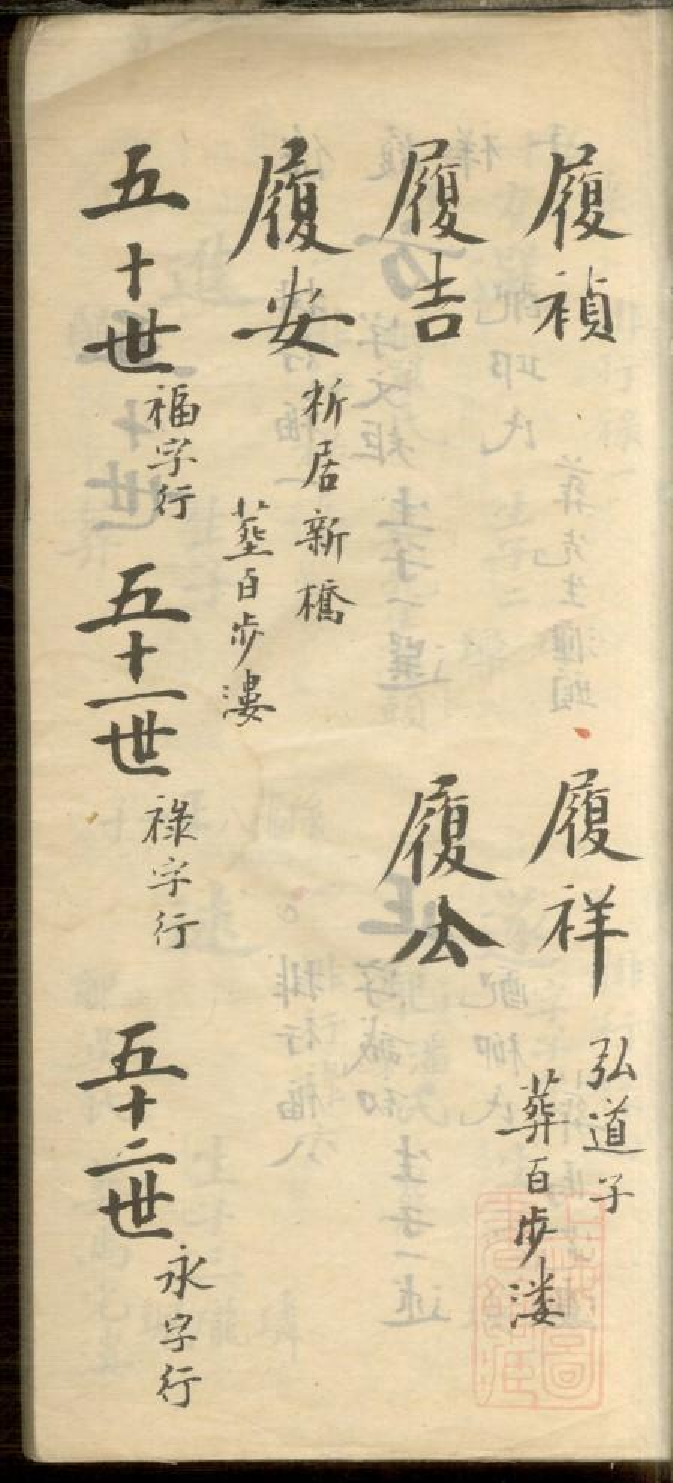 履禎
履祥 弘道子
葬百步溇
履吉
履公
履安 析居新橋
葬百步溇
五十世 福字行
五十一世 祿字行
五十二世 永字行